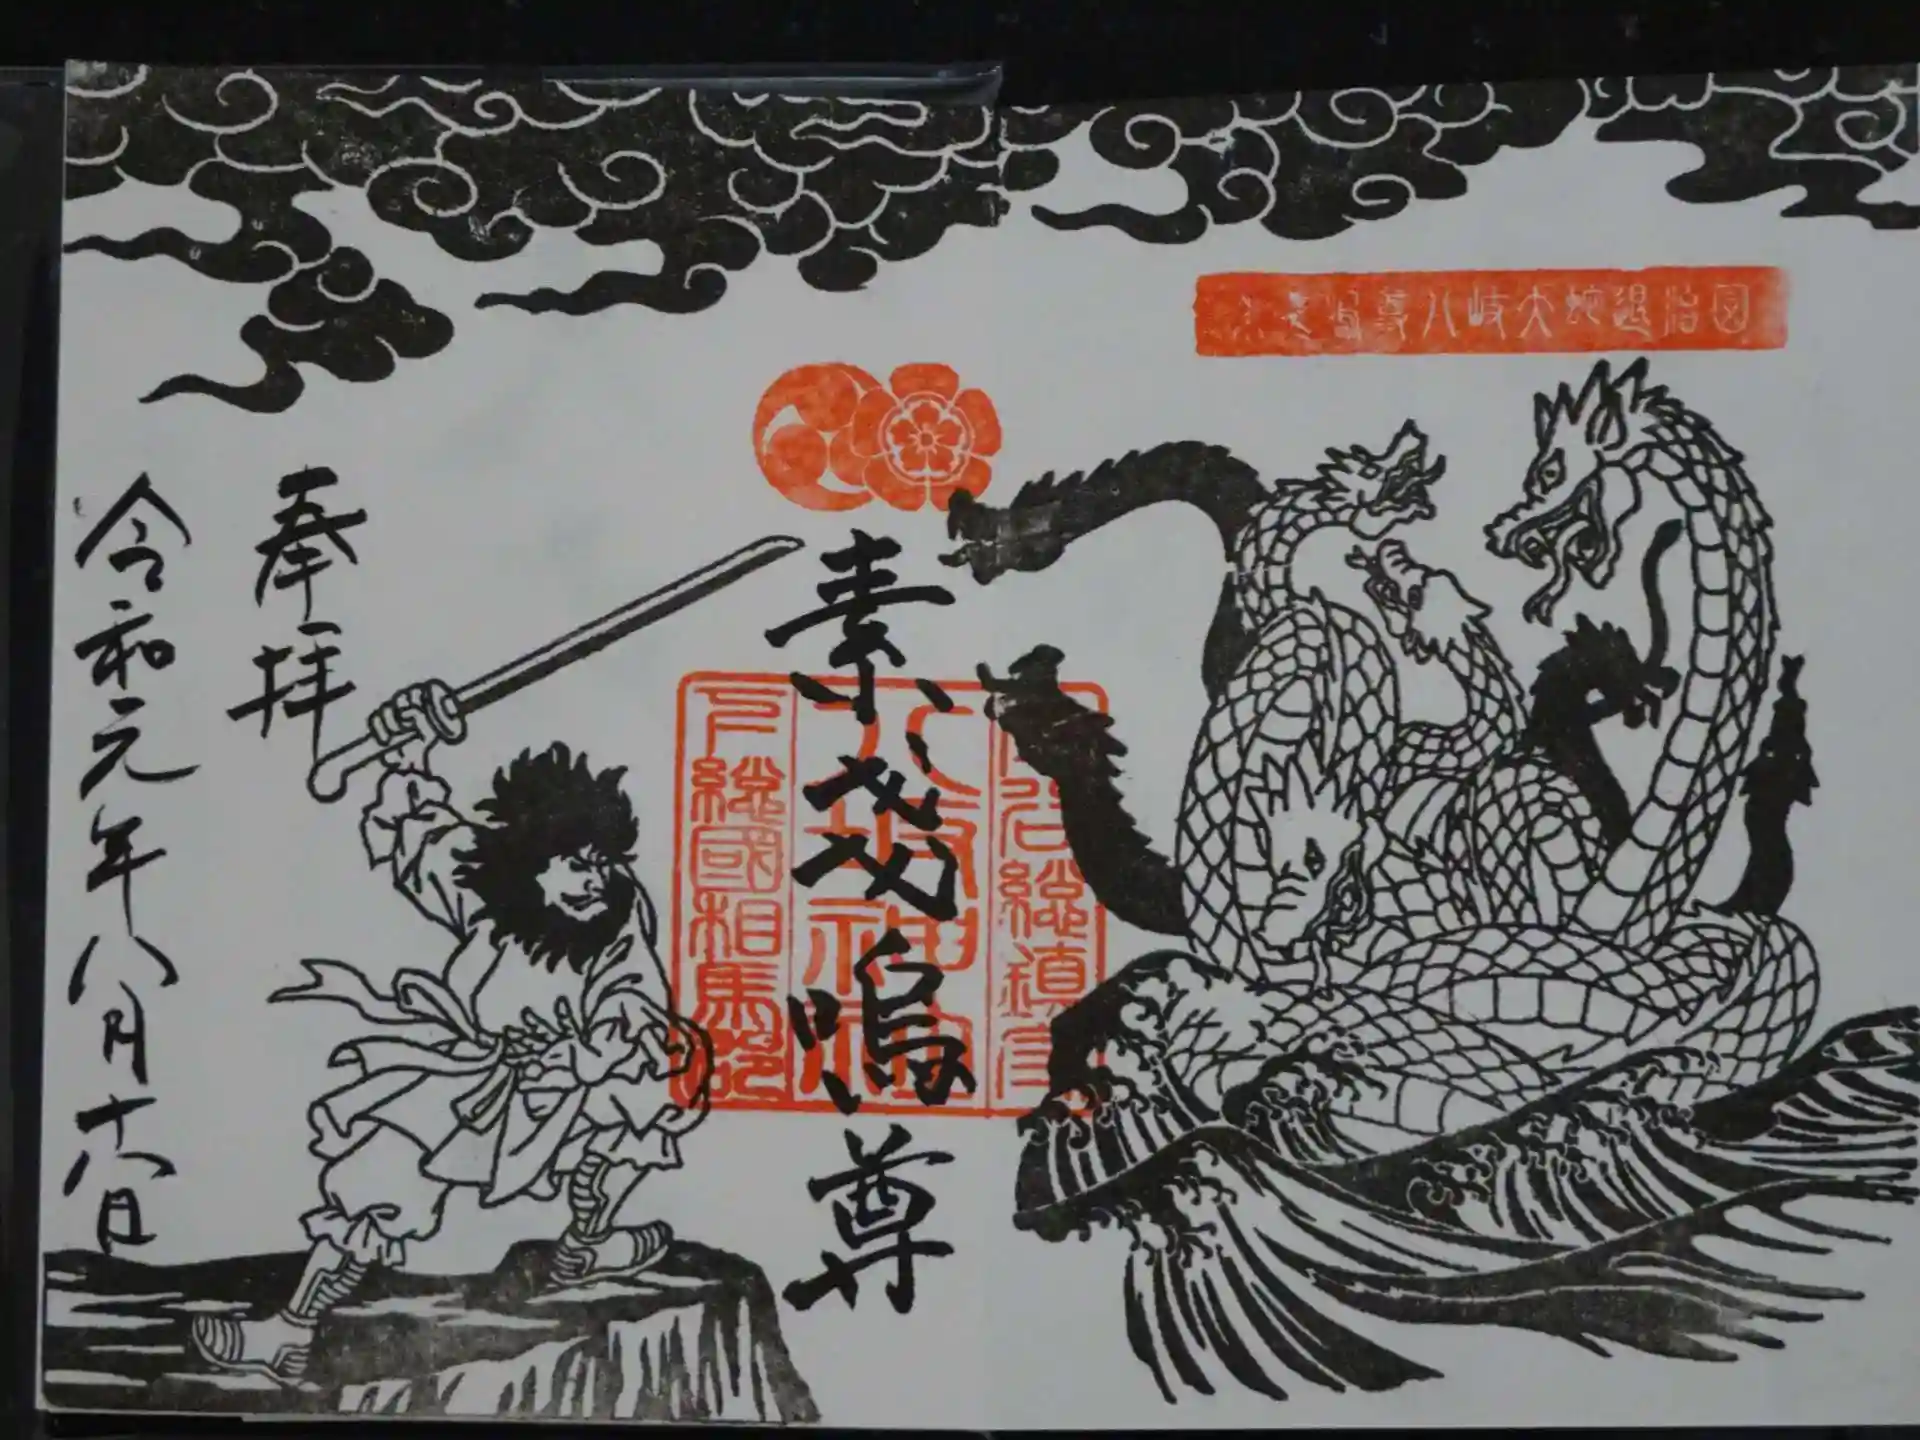 尊八岐大蛇退治図
素戔嗚尊
總鎮守
八坂神社
下總國相馬郡
奉拝
令和元年八月十八日